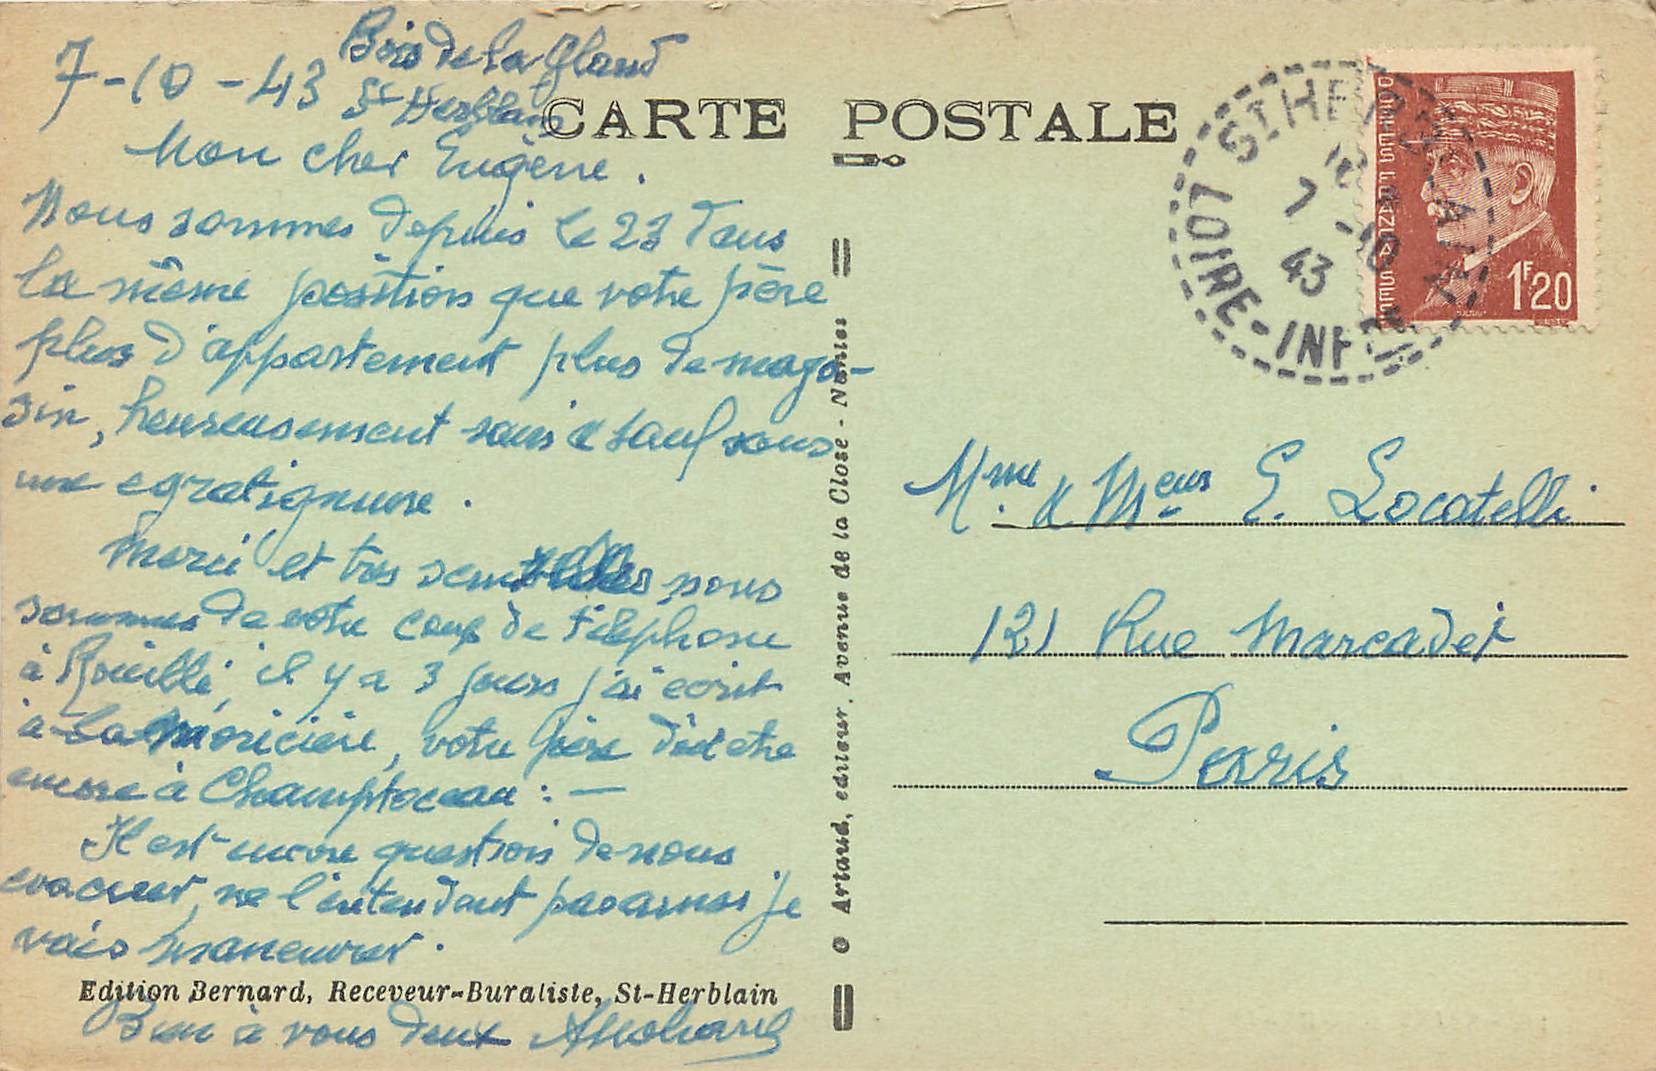 7-10-43 Bois de la Gland
St Herblain
CARTE POSTALE
Mon cher Eugène.
Nous sommes depuis le 23 dans
la même position que votre père
plus d'appartement plus de maga-
sin, heureusement sains & sauf sans
une egratignure.
Merci et très sensibles nous
sommes de votre coup de téléphone
à Rouillé, il y a 3 jours j'ai ecrit
à la Moricière, votre père doit etre
encore à Champtoceau : —
Il est encore question de nous
evacuer, ne l'entendant pas ainsi je
vais manœuvrer.
Edition Bernard, Receveur-Buraliste, St-Herblain
Bien à vous deux
Artaud, editeur, Avenue de la Close - Nantes
ST HERBLAIN
7 -10
43
LOIRE-INFRE
POSTES FRANÇAISES
1F20
Mme & Meur E. Locatelli
121 Rue Marcadet
Paris